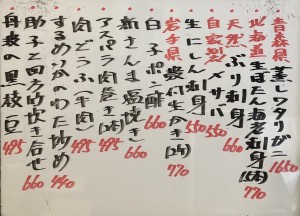 青森県 蒸しワタリガニ 1650
北海道 生ぼたん海老刺身(1本) 770
天然 ぶり刺身 660
自家製 〆サバ 550
生にしん刺身 550
岩手県 殻付生かき(2ケ) 770
白子ポン酢 660
新さんま塩焼き 660
アスパラ肉巻(2本) 495
肉どうふ(牛肉) 495
するめいかのわた炒め 440
助子と 炊き合せ 660
丹波の黒枝豆 495